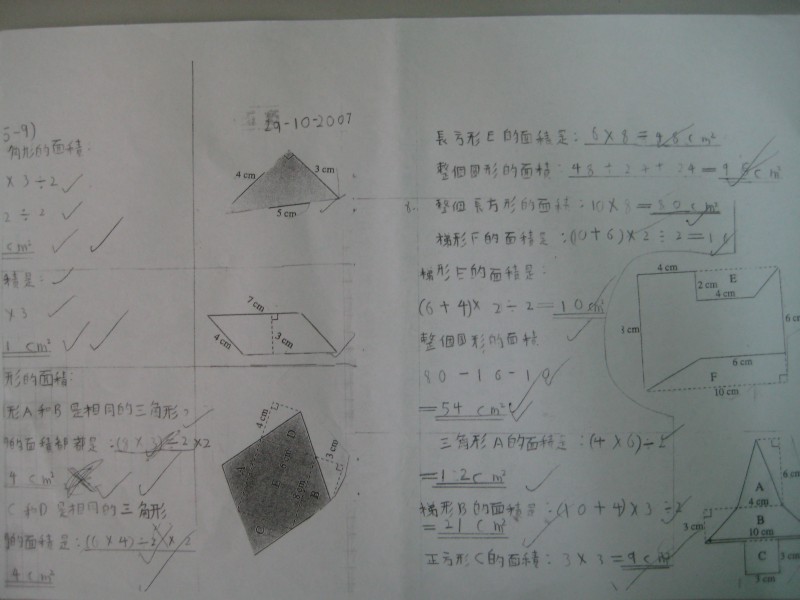 5-9)
角形的面積:
× 3 ÷ 2
2 ÷ 2
cm²
積是:
× 3
1 cm²
形的面積:
形A和B是相同的三角形,
的面積都是:(
÷ 2 × 2
9 cm²
C和D是相同的三角形
的面積是:(6 × 4) ÷ 2 × 2
4 cm²
29-10-2007
4 cm
3 cm
5 cm
7 cm
4 cm
3 cm
4 cm
D
A
E
3 cm
B
C
長方形E的面積是:6 × 8 =
cm²
整個圖形的面積:48 ÷ 2 +
24 = 96 cm²
8.
整個長方形的面積:10 × 8 = 80 cm²
梯形F的面積是:(10 + 6) × 2 ÷ 2 = 16
梯形E的面積是:
(6 + 4) × 2 ÷ 2 = 10 cm²
整個圖形的面積
80 - 16 - 10
= 54 cm²
4 cm
2 cm
E
4 cm
6 c
1 cm
6 cm
F
10 cm
三角形A的面積是:(4 × 6) ÷ 2
= 12 cm²
梯形B的面積是:(10 + 4) × 3 ÷ 2
= 21 cm²
正方形C的面積:3 × 3 = 9 cm²
A
6 cm
4 cm
3 cm
B
10 cm
C
3 cm
3 cm